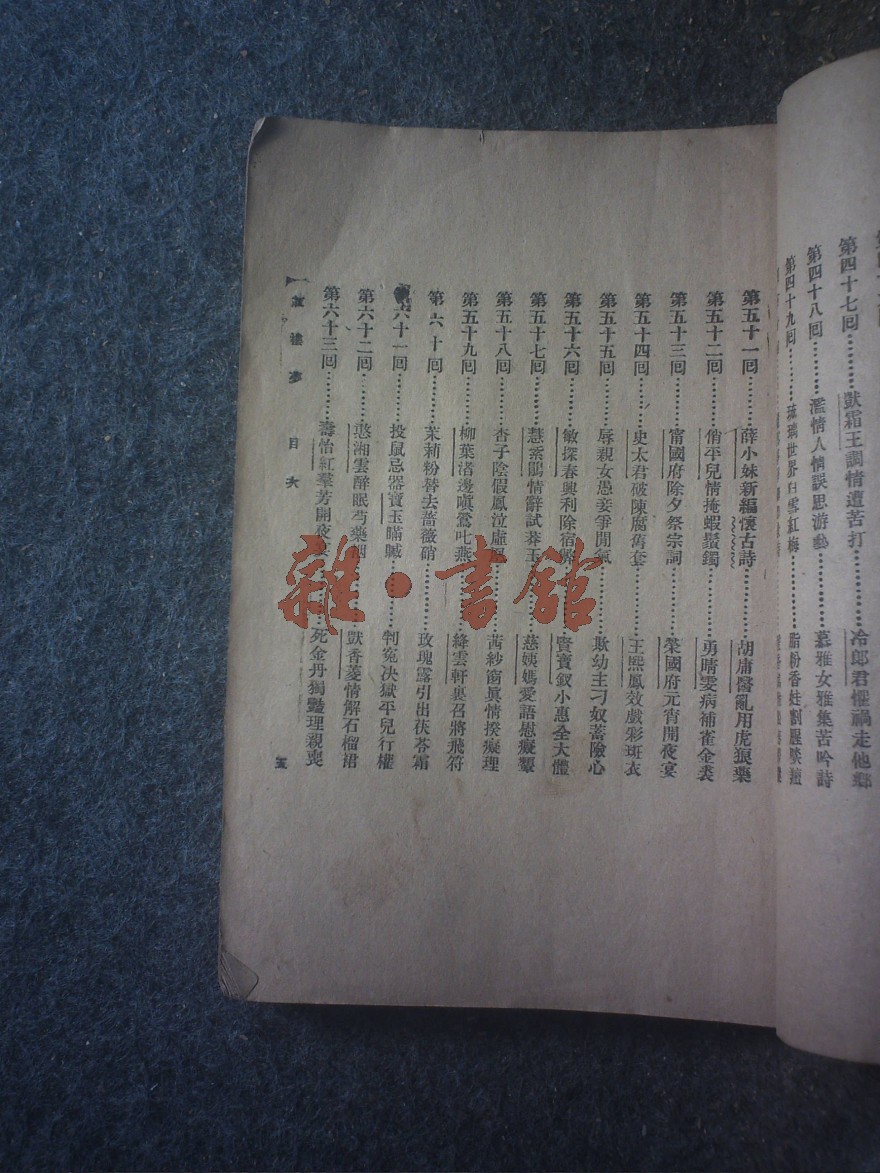 第四十七回………獃霸王調情遭苦打…………冷郎君懼禍走他鄉
第四十八回………濫情人情誤思游藝…………慕雅女雅集苦吟詩
第四十九回………琉璃世界白雪紅梅…………脂粉香娃割腥啖羶
第五十一回………薛小妹新編懷古詩…………胡庸醫亂用虎狼藥
第五十二回………俏平兒情掩蝦鬚鐲…………勇晴雯病補雀金裘
第五十三回………甯國府除夕祭宗祠…………榮國府元宵開夜宴
第五十四回………史太君破陳腐舊套…………王熙鳳效戲彩斑衣
第五十五回………辱親女愚妾爭閒氣…………欺幼主刁奴蓄險心
第五十六回………敏探春興利除宿弊…………賢寶釵小惠全大體
第五十七回………慧紫鵑情辭試莽玉…………慈姨媽愛語慰癡顰
第五十八回………杏子陰假鳳泣虛凰…………茜紗窗眞情揆癡理
第五十九回………柳葉渚邊嗔鶯叱燕…………絳雲軒裏召將飛符
第六十回………茉莉粉替去薔薇硝…………玫瑰露引出茯苓霜
六十一回………投鼠忌器寶玉瞞贓…………判寃决獄平兒行權
第六十二回………憨湘雲醉眠芍藥裀…………獃香菱情解石榴裙
第六十三回………壽怡紅羣芳開夜宴…………死金丹獨豔理親喪
樓夢 目次
五
雜·書館